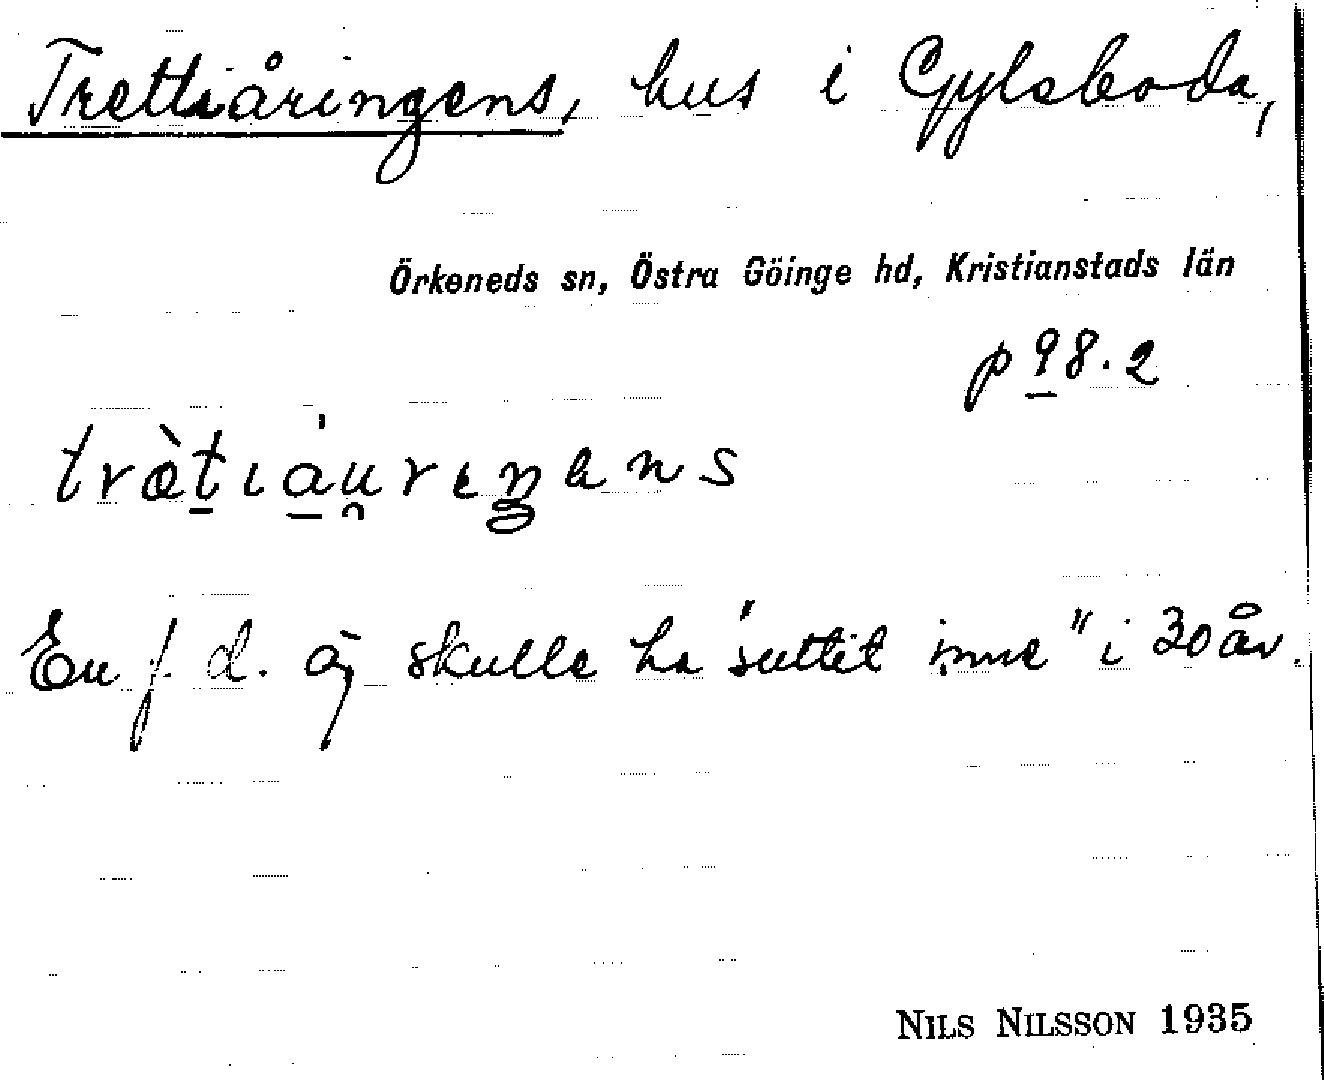 Trettiåringens, hus i Gylsboda,
Örkeneds sn, Östra Göinge hd, Kristianstads län
p 98.2
trètiáu̯reŋens
En f. d. äg skulle ha "suttit inne" i 30 år.
NILS NILSSON 1935